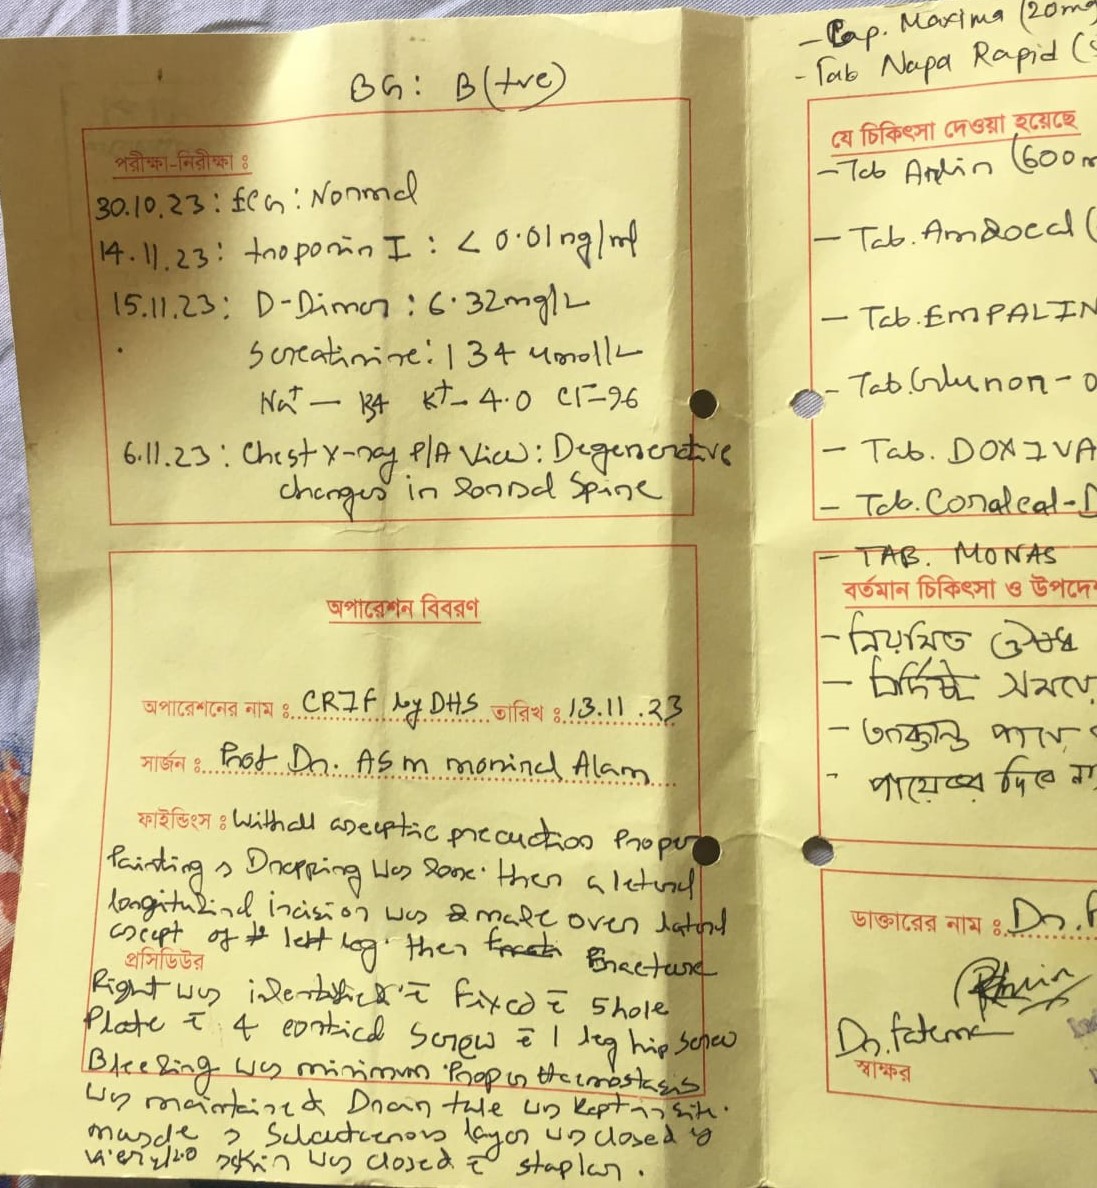 BG: B(+ve)
পরীক্ষা-নিরীক্ষা :
30.10.23: ECG: Normal
14.11.23: troponin I : < 0.01 ng/ml
15.11.23: D-Dimer : 6.32 mg/L
S creatinine: 134 umol/L
Na+ — 134 K+- 4.0 Cl--96
6.11.23: Chest X-ray P/A View: Degenerative
changes in dorsal Spine
অপারেশন বিবরণ
অপারেশনের নাম : CRIF by DHS তারিখ : 13.11.23
সার্জন : Prof Dr. ASM monirul Alam
ফাইন্ডিংস : With all aseptic precaution Proper
Painting & Drapping was done. then a lateral
longitudinal incision was made over lateral
ascept of left leg. then Fracture
প্রসিডিউর
Right was identified c̄ fixed c̄ 5 hole
Plate c̄ 4 cortical screw c̄ 1 leg hip screw
Bleeding was minimum. Proper Haemostasis
was maintained Drain tube was kept in situ.
muscle & Subcutaneous layer was closed
skin was closed c̄ stapler.
- Cap. Maxima (20mg
- Tab Napa Rapid (
যে চিকিৎসা দেওয়া হয়েছে
- Tab Arlin (600m
- Tab. Amdocal (
- Tab. EMPALIN
- Tab. Glunor - 
- Tab. DOXIVA
- Tab. Coralcal-D
- TAB. MONAS
বর্তমান চিকিৎসা ও উপদে
- নিয়মিত ঔষধ
- নির্দিষ্ট সময়ে
- আক্রান্ত পায়ে
- পায়ের দিকে
ডাক্তারের নাম : Dr.
Dr. Fatema
স্বাক্ষর